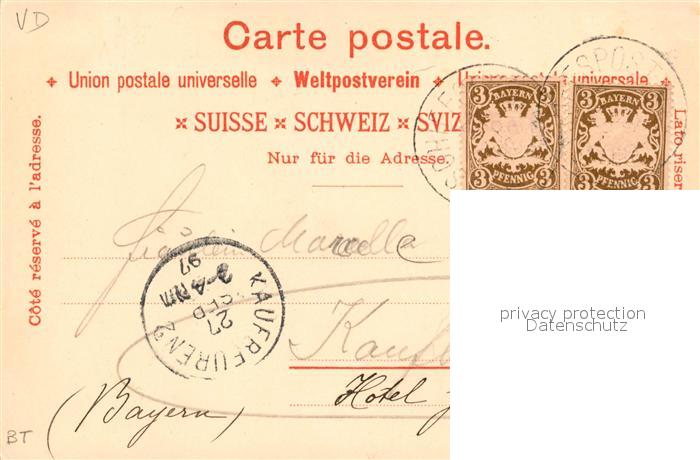 VD
Carte postale.
✦ Union postale universelle ✦ Weltpostverein ✦ Unione postale universale ✦
✕ SUISSE ✕ SCHWEIZ ✕ SVIZ
Nur für die Adresse.
Côté réservé à l'adresse.
Lato riser
3 3
BAYERN
PFENNIG
3 3
3 3
BAYERN
PFENNIG
3 3
Fräulein Marcelle
KAUFBEUREN 2
27
SEP
97
Kauf
Hotel
(Bayern)
BT
privacy protection
Datenschutz